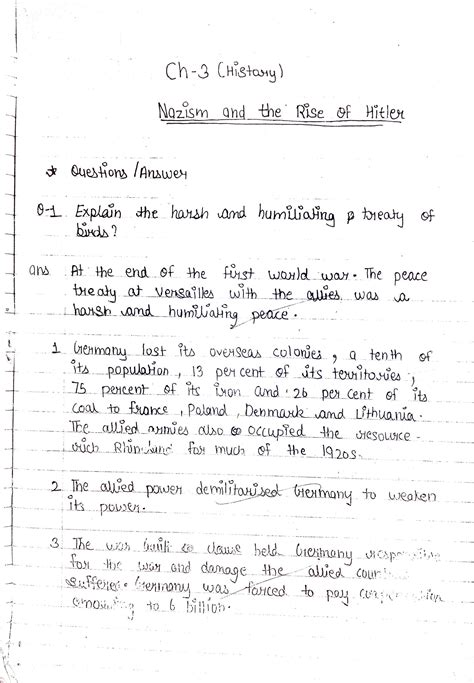 Ch-3 (History)
Nazism and the Rise of Hitler
* Questions/Answer
Q-1 Explain the harsh and humiliating p treaty of
birds?
ans At the end of the first world war. The peace
treaty at versailles with the allies was a
harsh and humiliating peace.
1 Germany lost its overseas colonies, a tenth of
its population, 13 percent of its territories,
75 percent of its iron and 26 per cent of its
coal to france, Poland, Denmark and Lithuania.
The allied armies also occupied the resource
rich Rhineland for much of the 1920s.
2 The allied power demilitarised Germany to weaken
its power.
3 The war guilt clause held Germany
for the war and damage the allied
suffered. Germany was forced to pay
amounting to 6 billion.